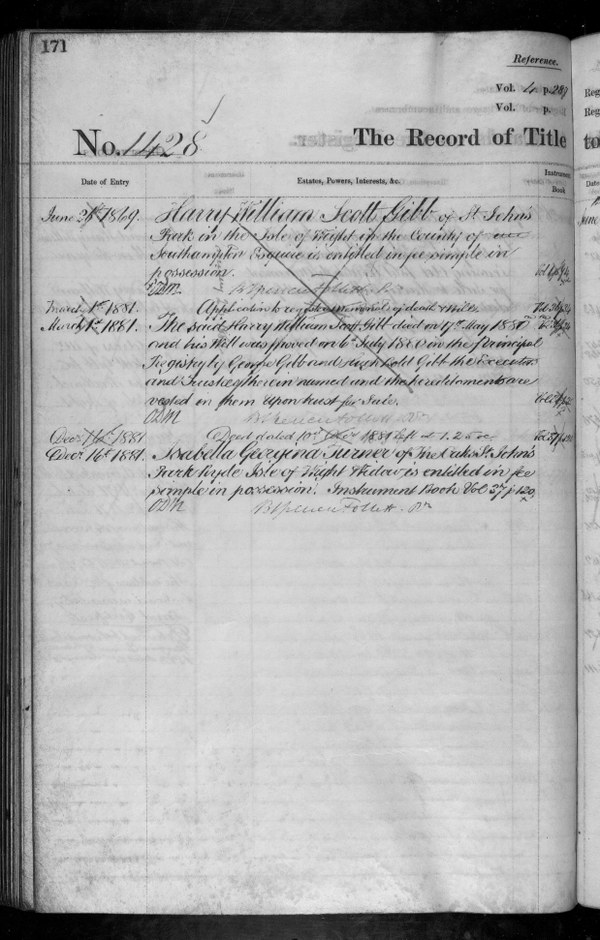 171
Reference.
Vol. 4 p. 289
Vol. p.
No. 1428 The Record of Title
Date of Entry Estates, Powers, Interests, &c. Instrument Book
June 1869. Harry William Scott Gibb of St. John's
Park in the Isle of Wight in the County of
Southampton Esquire is entitled in fee simple in
possession.
ODM BSpencer Follett Rr
March 1st 1881. Application to register memorials of death & Will
March 1st 1881. The said Harry William Scott Gibb died on 17th May 1880
and his Will was proved on 6th July 1880 in the principal
Registry by George Gibb and Gibb the Executors
and Trustees therein named and the hereditaments are
vested in them upon trust for Sale.
ODM BSpencer Follett Rr
Decr 16th 1881 Deed dated 10th 1881 left at 1.25
Decr 16th 1881. Isabella Georgina Turner of The Oaks St. John's
Park Ryde Isle of Wight Widow is entitled in fee
simple in possession. Instrument Book Vol 37 p 120.
ODM BSpencer Follett Rr